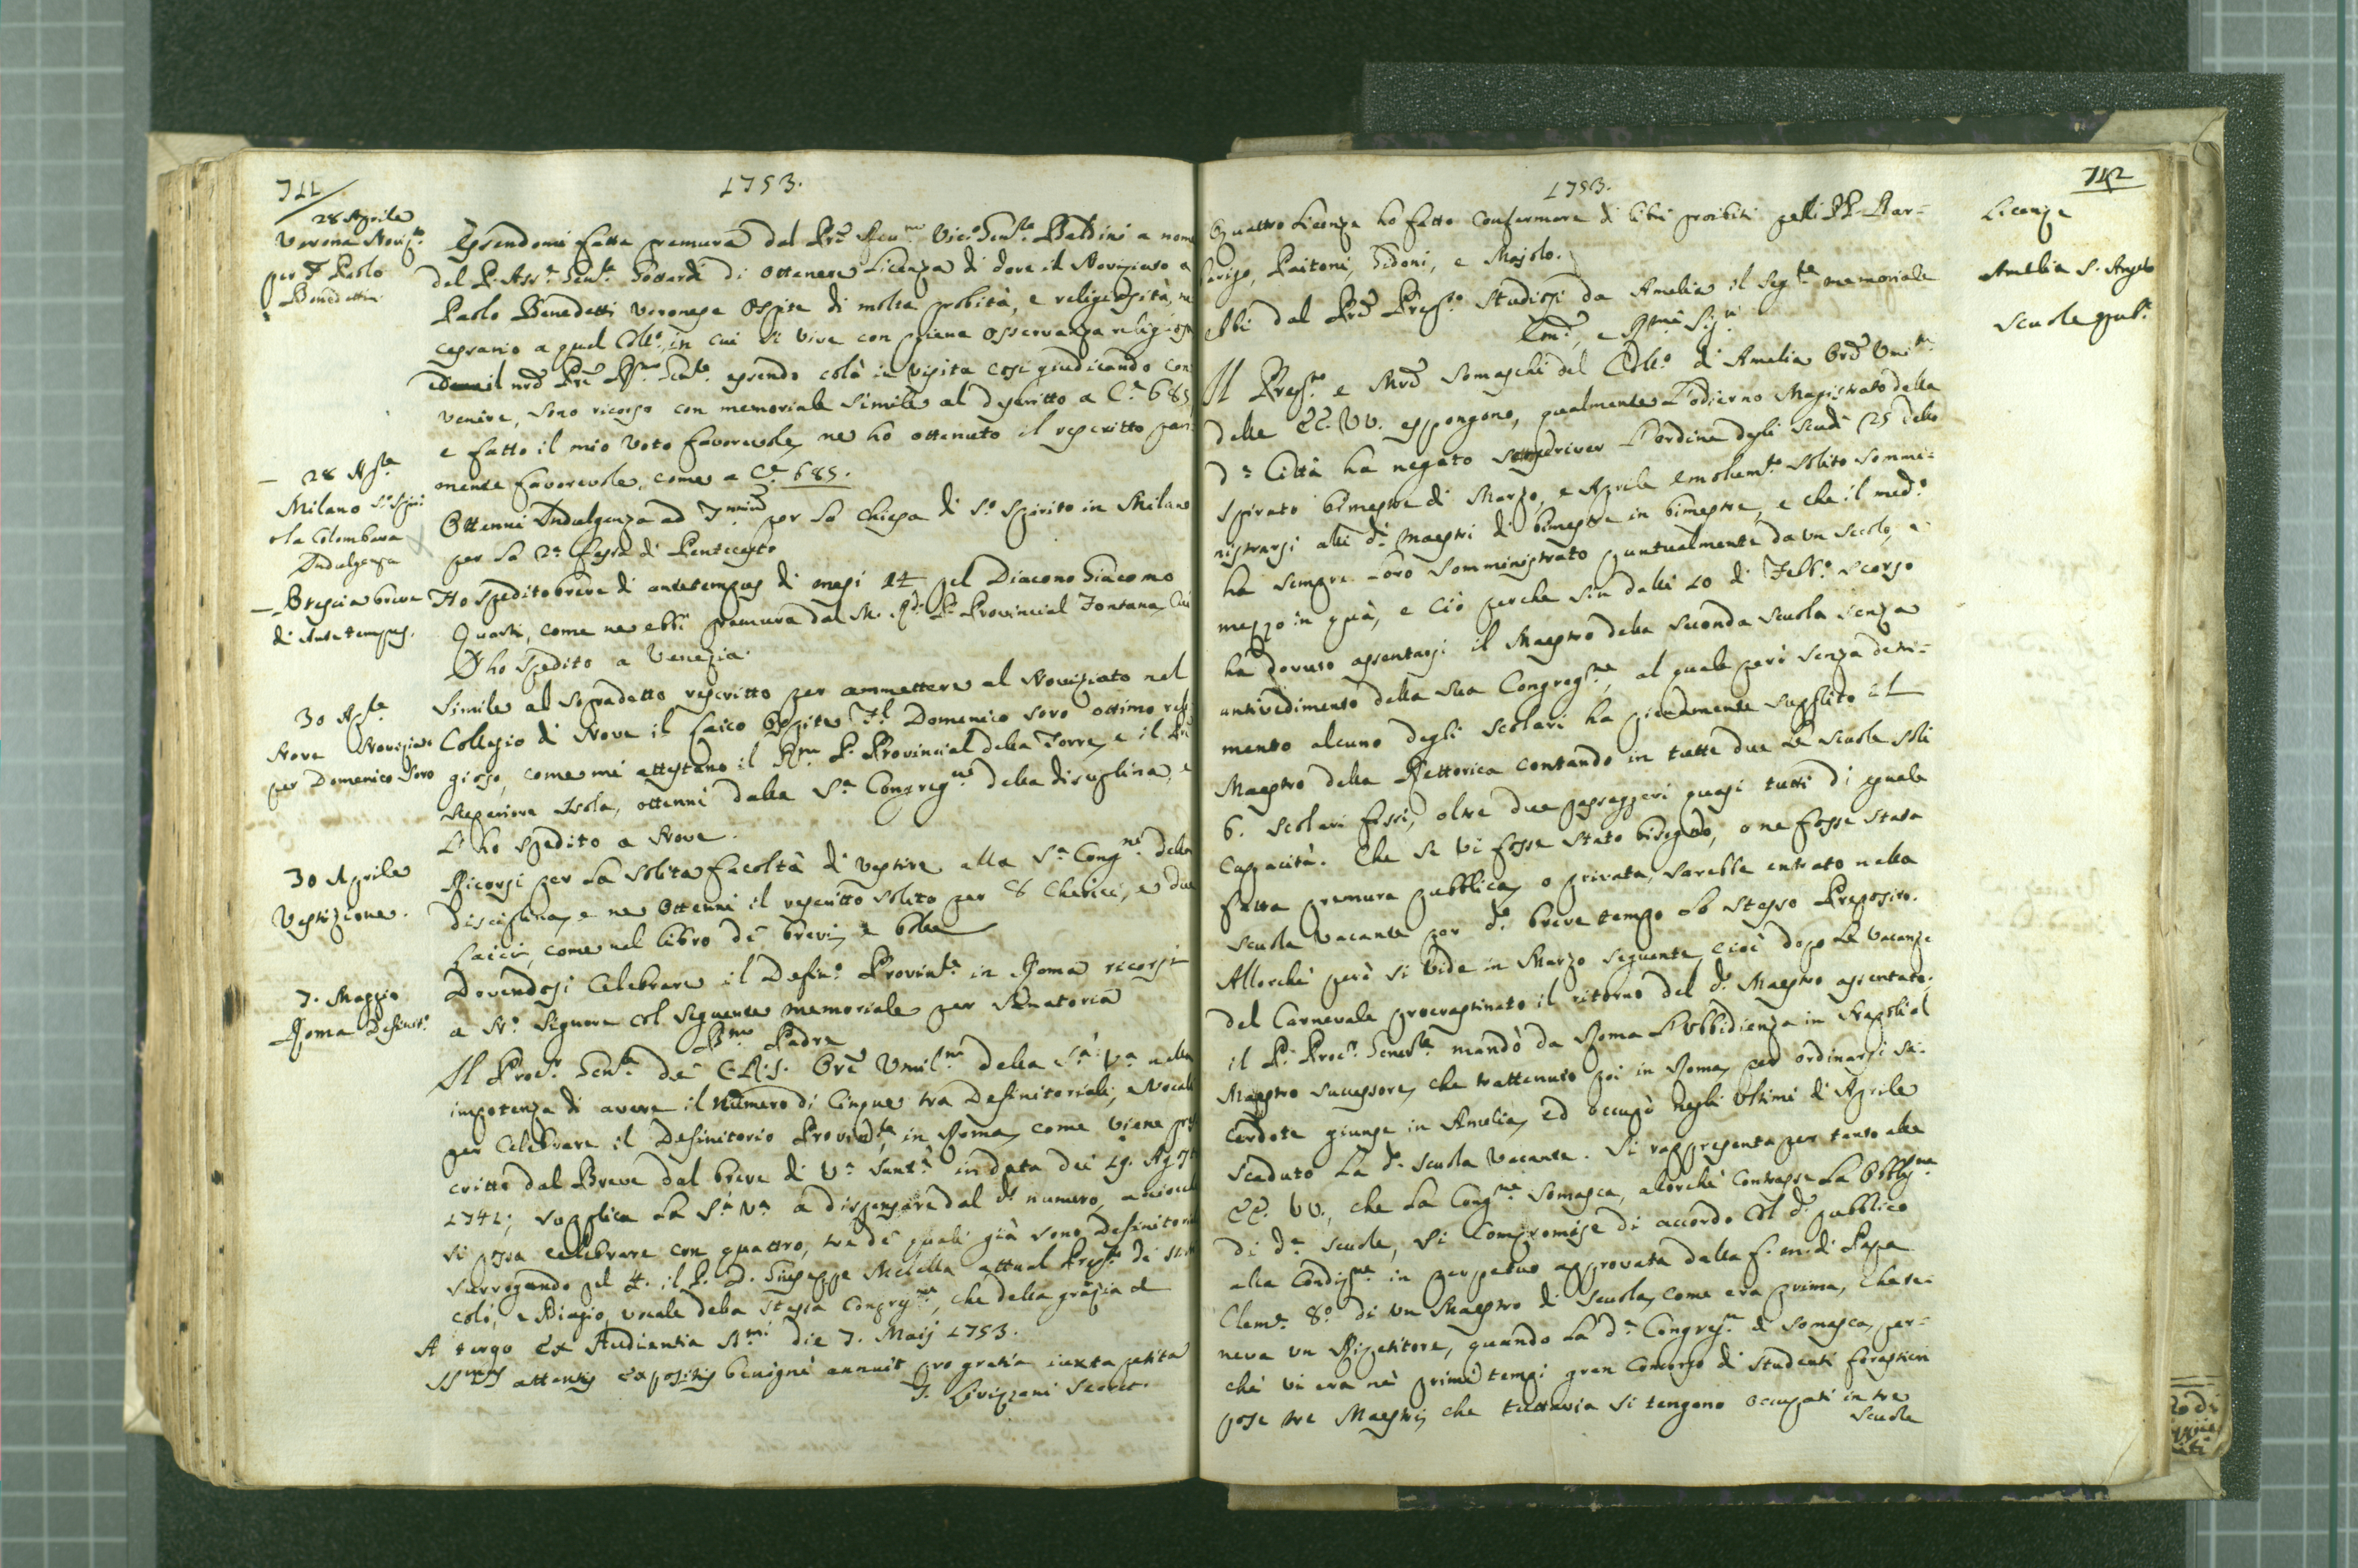 711
1753.
28 Aprile
Verona Noviz.to
per F. Paolo
Benedetti
Essendomi fatta premura dal Pre Rev.mo Vic.o Gen.le Baldini a nome
del P. Ass.e Gen.le di ottenere Licenza di dare il Noviziato a
Paolo Benedetti Veronese Ospite di molta probità, e religiosità, ne
cessario a quel Coll.o, in cui si vive con piena osservanza religiosa
il nr̃o Pr̃e Rṽmo Gen.le essendo colà in visita così giudicando con
venire, sono ricorso con memoriale simile al descritto a C.e 685,
e fatto il mio voto favorevole, ne ho ottenuto il rescritto pari
mente favorevole, come a C.e 685.
28 Ap.le
Milano S.o Spiri
o la Colombara
Indulgenza
Ottenni Indulgenza ad per la Chiesa di S.o Spirito in Milano
per la 2.a festa di Pentecoste
Brescia breve
di Ante tempus.
Ho spedito breve di ante tempus di mesi 14 pel Diacono Giacomo
Quarti, come ne ebbi premura dal M. R.do P. Provincial Fontana, cui
l'ho spedito a Venezia.
30 Ap.le
Nove Noviziato
per Domenico Soro
Simile al sopradetto rescritto per ammettere al Noviziato nel
Collegio di Nove il Laico Ospite F.l Domenico Soro ottimo reli
gioso, come mi attestano il Rṽ.mo P. Provincial della Torre, e il
Superiore Isola, ottenni dalla S.a Congreg.ne della disciplina, e
L'ho spedito a Nove.
30 Aprile
Vestizione.
Ricorsi per la solita facoltà di vestire alla S.a Cong.ne della
disciplina, e ne ottenni il rescritto solito per 8 Cherici, e due
Laici, come nel libro de' brevi, e bolle
7. Maggio
Roma Definit.o
Dovendosi Celebrare il Defin.o Provinc.le in Roma ricorsi
a N.o Signore col seguente memoriale per Sanatoria
B.mo Padre
Il Proc.r Gen.le de' C.R.S. Ore Umil.mo della S.a V.a nella
impotenza di avere il Numero di Cinque tra Definitoriali, e Vocali
per Celebrare il Definitorio Provinc.le in Roma, come viene pres
critto dal Breve dal breve di V.a Sant.à in data dei 19. Agosto
1741; supplica la S.a V.a a dispensare dal d.o numero, acciocché
si possa celebrare con quattro, tre de' quali già sono Definitori
surrogando pel 4. il P. D. Giuseppe Melella attual Prep.to de' SS. Ni
colò, e Biagio, vocale della stessa Congreg.ne, che della grazia &
A tergo Ex Audientia SS.mi die 7. Maij 1753.
SS.mus attentis expositis benigne annuit pro gratia iuxta petita
J. Livizzani Secret.
712
1753.
Licenze
Quattro Licenze ho fatto Confermare di libri proibiti pelli PP. Bar=
berigo, Paitoni, Gidoni, e Majolo.
Amelia S. Angelo
Scuole pub.e
Ebbi dal Pre Prep.to Studiosi da Amelia il seg.te memoriale
Em̃i, e Rṽmi Sig.ri
Il Prep.to e Mr̃i Somaschi del Coll.o di Amelia Or̃i Umil.mi
delle EE. VV. espongono, qualmente L'odierno Magistrato della
d.a Città ha negato scrivere L'ordine degli scudi 25 dello
spirato bimestre di Marzo, e Aprile emolum.to solito sommi=
nistrarsi alli d.i Maestri di bimestre in bimestre, e che il med.o
ha sempre loro somministrato puntualmente da un secolo, e
mezzo in quà, e ciò perche sin dalli 10 di Febb.o scorso
ha dovuto assentarsi il Maestro della seconda Scuola senza
antivedimento della sua Congreg.ne, al quale però senza detri=
mento alcuno degli Scolari ha pienamente supplito il
Maestro della Rettorica contando in tutte due le Scuole soli
6. Scolari fissi, oltre due passaggeri quasi tutti di eguale
Capacità. Che se vi fosse stato bisogno, o ne fosse stata
fatta premura pubblica, o privata, sarebbe entrato nella
scuola vacante per d.o breve tempo lo stesso Preposito.
Allorché però si vide in Marzo seguente, cioè dopo le vacanze
del Carnevale procrastinato il ritorno del d.o Maestro assentato,
il P. Proc.r Gener.le mandò da Roma L'Ubbidienza in Napoli al
Maestro successore, che trattenuto poi in Roma, per ordinarsi Sa=
cerdote giunse in Amelia, ed occupò negli Ultimi di Aprile
scaduto la d.a scuola vacante. Si rappresenta per tanto alle
EE. VV., che la Cong.ne Somasca, allorché contrasse la Obblig.ne
di d.e Scuole, si compromise di accordo col d.o pubblico
alla Condiz.ne in perpetuo approvata dalla f. m. di Papa
Clem.e 8.o di un Maestro di Scuola, come era prima, che te=
neva un Ripetitore, quando la d.a Congreg.ne di Somasca, per=
ché vi era ne' primi tempi gran Concorso di Studenti forastieri
pose tre Maestri, che tuttavia si tengono occupati in tre
scuole